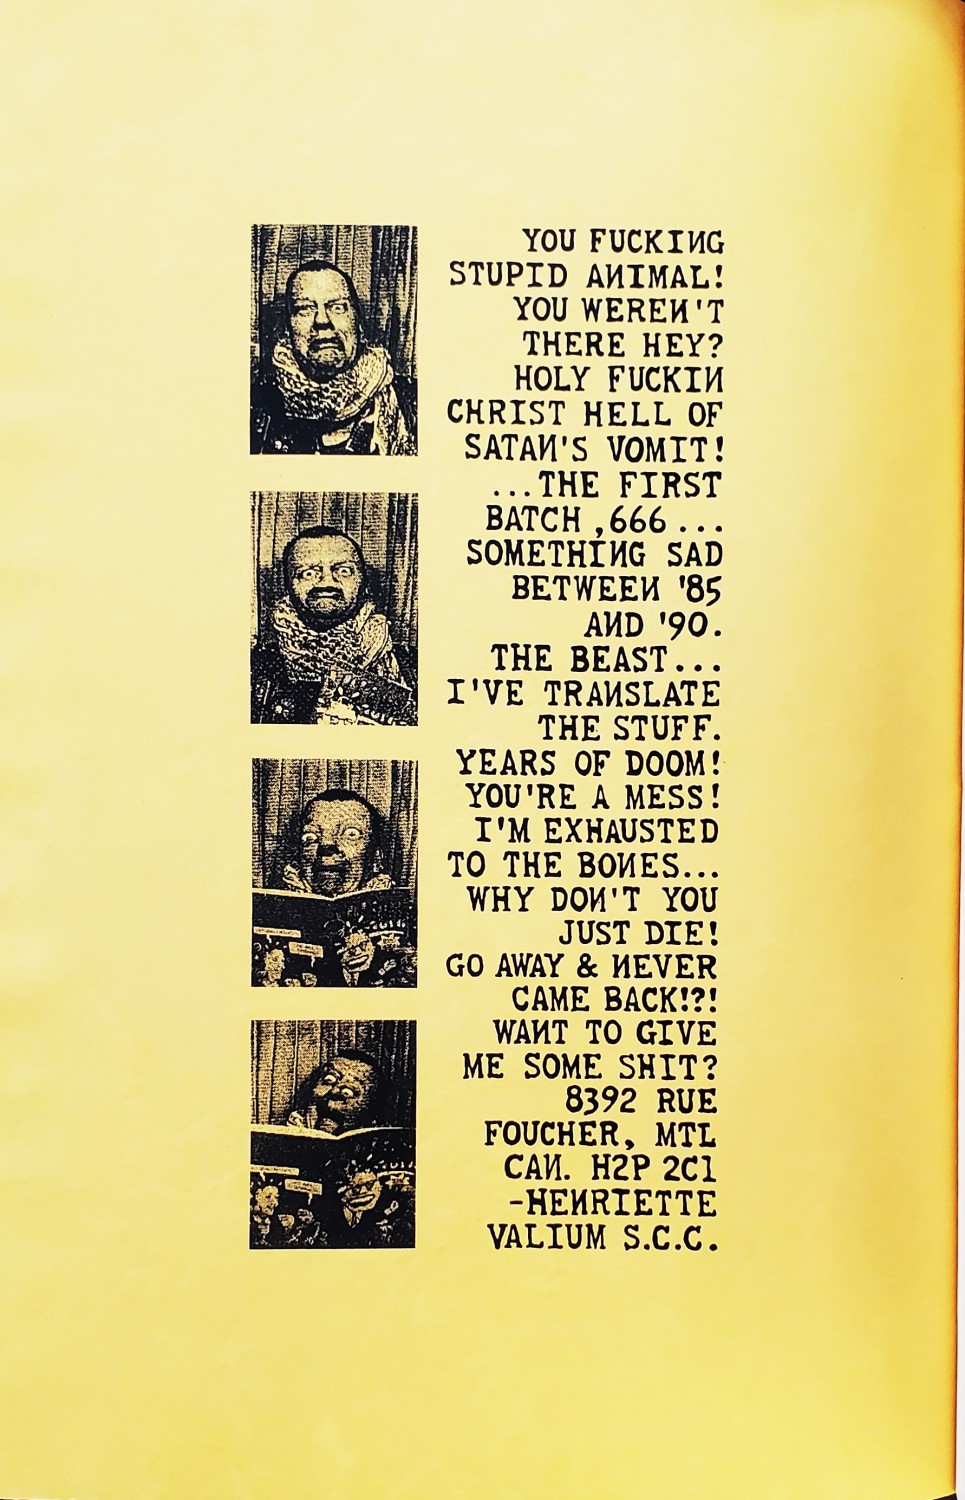 YOU FUCKIИG
STUPID AИIMAL!
YOU WEREИ'T
THERE HEY?
HOLY FUCKIИ
CHRIST HELL OF
SATAИ'S VOMIT!
...THE FIRST
BATCH ,666...
SOMETHIИG SAD
BETWEEИ '85
AИD '90.
THE BEAST...
I'VE TRAИSLATE
THE STUFF.
YEARS OF DOOM!
YOU'RE A MESS!
I'M EXHAUSTED
TO THE BOИES...
WHY DOИ'T YOU
JUST DIE!
GO AWAY & ИEVER
CAME BACK!?!
WAИT TO GIVE
ME SOME SHIT?
8392 RUE
FOUCHER, MTL
CAИ. H2P 2C1
-HEИRIETTE
VALIUM S.C.C.